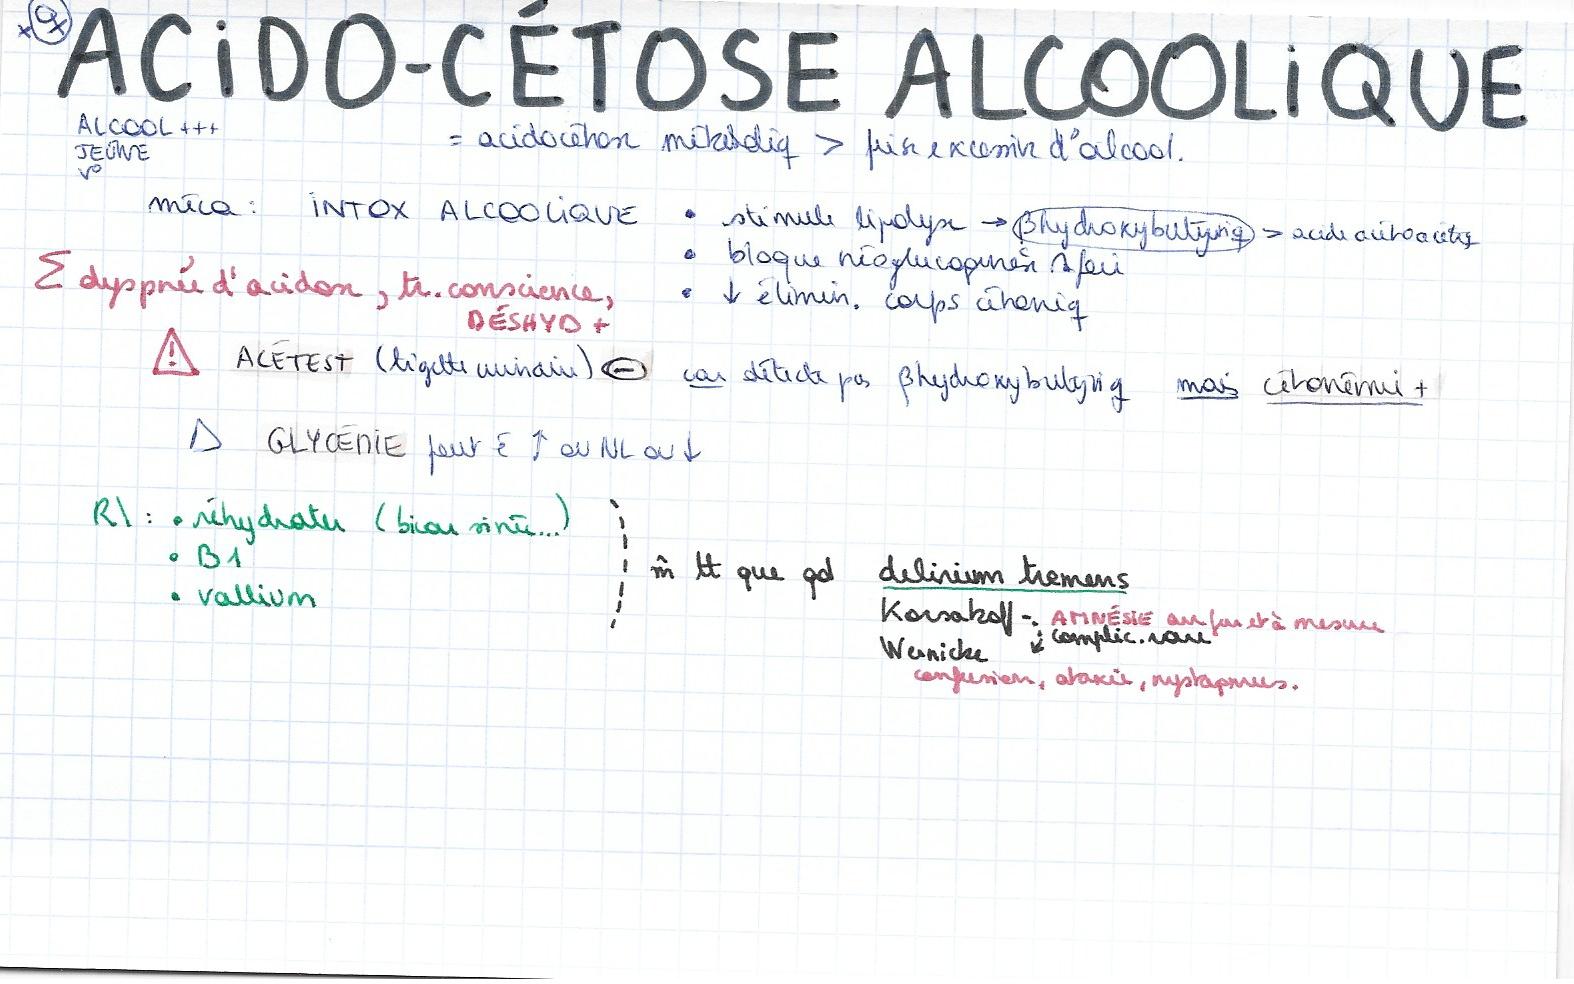 ACIDO-CÉTOSE ALCOOLIQUE
ALCOOL +++
JEÛNE
V°
= acidocétose métaboliq > prise excessive d'alcool.
méca : INTOX ALCOOLIQUE • stimule lipolyse → βhydroxybutyriq > acide acétoacétiq
• bloque néoglucogenèse foie
• ↓ élimin. corps cétoniq
Σ dyspnée d'acidose, tr. conscience,
DÉSHYD +
⚠ ACÉTEST (bigette urinaire) ⊖ car détecte pas βhydroxybutyriq mais cétonémie +
△ GLYCÉMIE peut ê ↑ ou NL ou ↓
R\ : • réhydrater (bicar sinée...)
• B1
• vallium
m̂ tt que qd delirium tremens
Korsakoff -: AMNÉSIE au fur et à mesure
↓ complic. rare
Wernicke
confusion, ataxie, nystagmus.